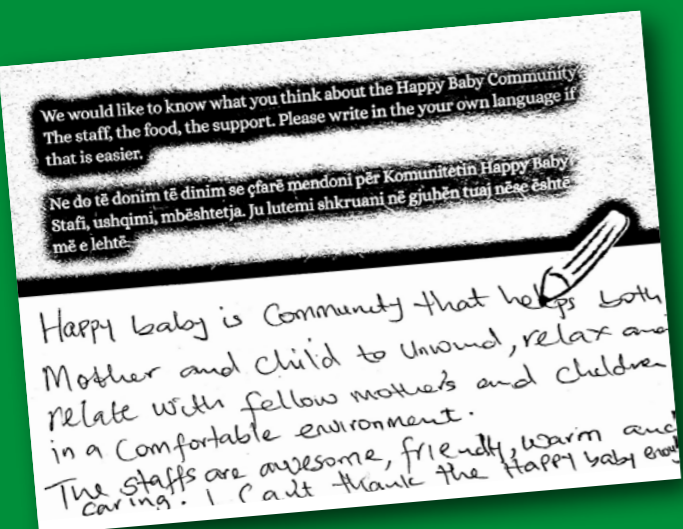 We would like to know what you think about the Happy Baby Community
The staff, the food, the support. Please write in the your own language if
that is easier.
Ne do të donim të dinim se çfarë mendoni për Komunitetin Happy Baby
Stafi, ushqimi, mbështetja. Ju lutemi shkruani në gjuhën tuaj nëse është
më e lehtë.
Happy baby is Community that helps both
Mother and child to Unwind, relax and
relate with fellow mother's and children
in a Comfortable environment.
The staffs are awesome, friendly, warm and
caring. I Can't thank the Happy baby enough